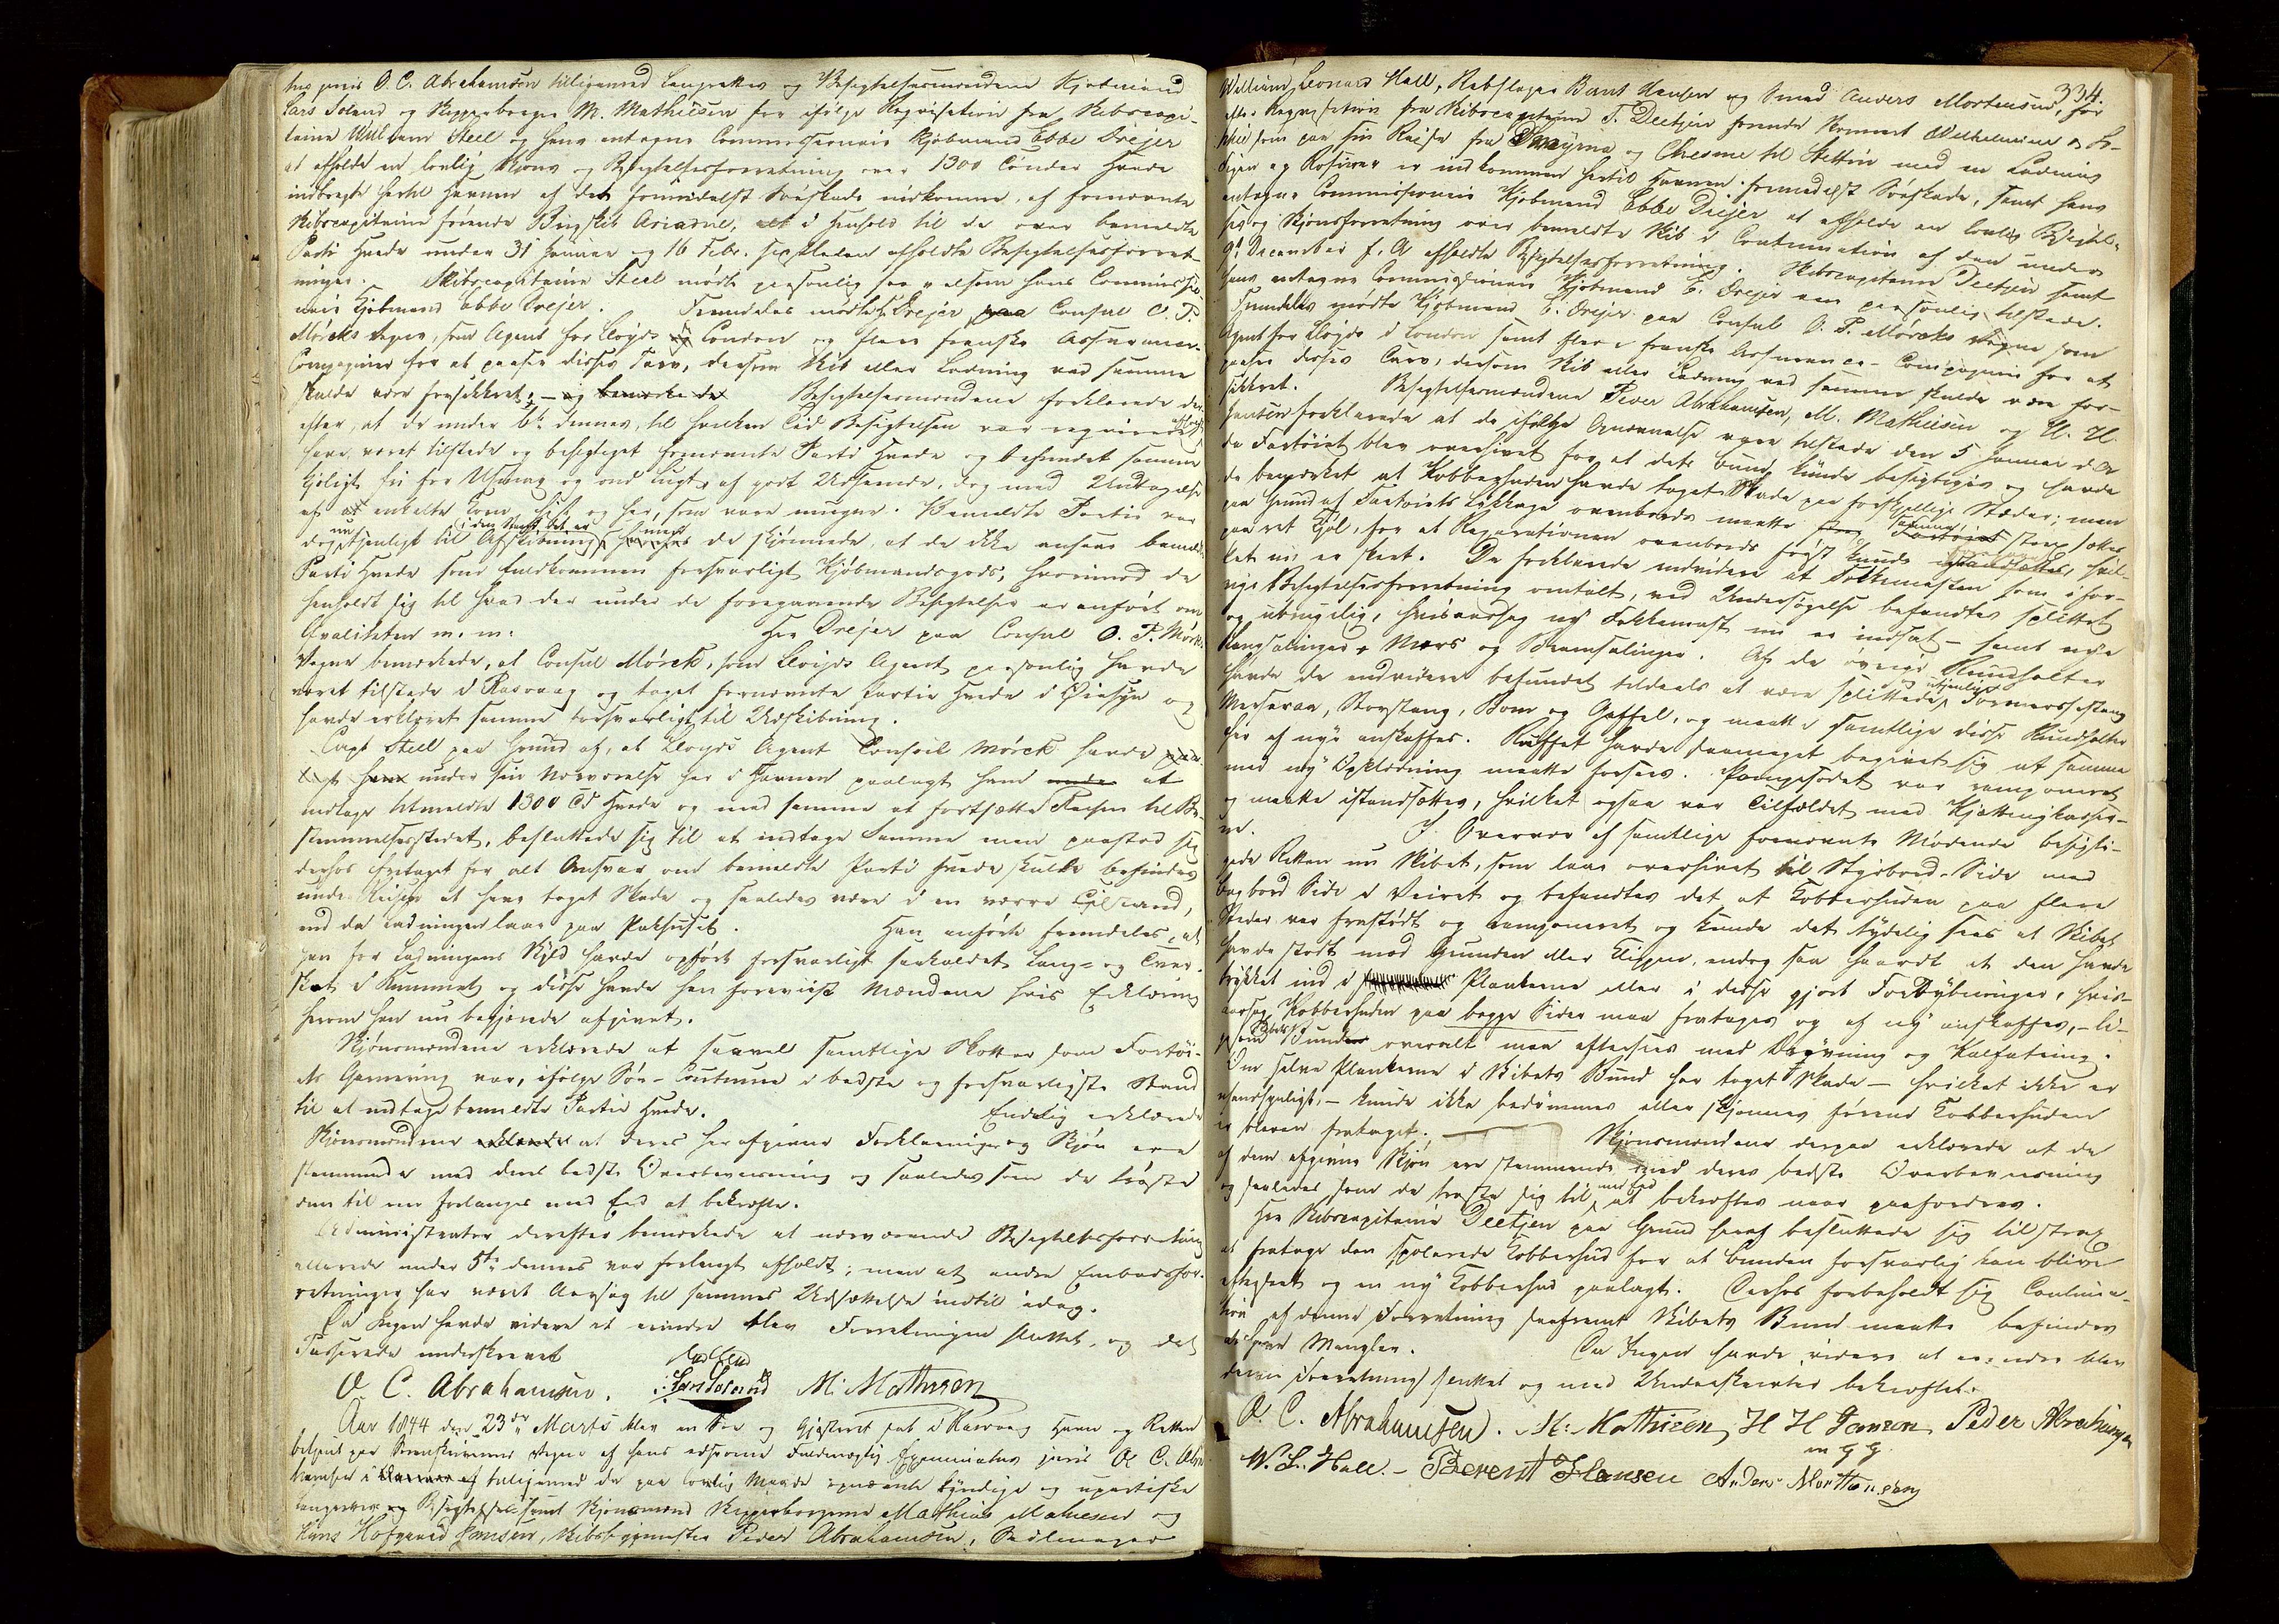 tus juris O. C. Abrahamsen tilligemed Laugrettes og Besigtelsesmændene Kjøbmand
Lars Soland og Skipperborger M. Mathiesen for ifølge Reqvisition fra Skibscapi-
taine William Stell og hans antagne Commissionair Kjøbmand Ebbe Drejer
at afholde en lovlig Skjøns og Besigtelsesforretning over 1300 Tønder Hvede
indbragte hertil Havnen af det formedelst Søeskade indkomne, af fornævnte
Skibscapitaine førende Brigskib Ariadne, alt i Henhold til de over bemeldte
Parti Hvede under 31 Januar og 16 Febr. sidstleden afholdte Besigtelsesforret-
ninger. Skibscapitaine Stell mødte personlig saavelsom hans Commissio-
nair Kjøbmand Ebbe Drejer. Fremdeles mødte Drejer paa Consul O. P.
Mörcks Vegne, som Agent for Lloyds i London og flere franske Assurance-
Compagnier for at paasee disses Tarv, dersom Skib eller Ladning ved samme
skulde være forsikkret; — og bemærkede Besigtelsesmændene forklarede der-
efter, at de under 6te dennes, til hvilken Tid Besigtelsen var reqvireret afholdt
have været tilstede og besigtiget fornævnte Parti Hvede og befundet samme
tjeligt fri for Ustang og ond Lugt, af godt Udseende, dog med Undtagelse
af et enkelte Korn hist og her, som vare mugne. Bemeldte Partie var
dog nu tjenligt til Afskibning i den Stand det er, hvornæst de skjønnede, at de ikke ansaae bemeldte
Parti Hvede som fuldkommen forsvarligt Kjøbmandsgods, hvorimod de
henholdt sig til hvad der under de foregaaende Besigtelser er anført om
Qvaliteten m. m. Hr Drejer paa Consul O. P. Mörcks
Vegne bemærkede, at Consul Mörck, som Lloyds Agent personlig havde
været tilstede i Rasvaag og taget fornævnte Partie Hvede i Øiesyn og
havde erklæret samme forsvarligt til Udskibning.
Capt Stell paa Grund af, at Lloyds Agent Consul Mörck havde paa-
lagt ham under sin Nærværelse her i Havnen paalagt ham at
indtage bemeldte 1300 Td Hvede og med samme at fortsætte Reisen til Be-
stemmelsesstedet, besluttede sig til at indtage Samme men paastod sig
derhos fritaget for alt Ansvar om bemeldte Parti Hvede skulde befindes
under Reisen at have taget Skade og saaledes være i en værre Tilstand,
end da Ladningen laae paa Pakhuset. Han anførte fremdeles, at
han for Ladningens Skyld havde opført forsvarligt saakaldet Lang- og Tver-
skot i Rummet og disse havde han foreviist Mændene hvis Erklæring
herom han nu begjærede afgivet.
Skjønsmændene erklærede at saavel samtlige Skotter som Fartøi-
ets Garnering var, ifølge Søe-Coutume i bedste og forsvarligste Stand
til at indtage bemeldte Partie Hvede. Endelig erklærede
Skjønsmændene erklærede at deres her afgivne Forklaringer og Skjøn ere
stemmende med deres bedste Overbeviisning og saaledes som de trøste
dem til om forlanges med Eed at bekræfte.
Administrator derefter bemærkede at nærværende Besigtelsesforretning
allerede under 5te dennes var forlangt afholdt; men at andre Embedsfor-
retninger har været Aarsag til sammes Udsættelse indtil idag.
Da Ingen havde videre at erindre blev Forretningen sluttet, og det
Passerede underskrevet
O. C. Abrahamsen. Lars Soland M. Mathiesen
Aar 1844 den 23de Marts blev en Søe og Gjesteret sat i Rasvaag Havn og Retten
betjent paa Sorenskriverens Vegne af hans edsvorne Fuldmægtig Examinatus juris O. C. Abra-
hamsen tilligemed de paa lovlig Maade opnævnte kyndige og upartiske
Laugrettes og Besigtelses samt Skjønsmænd Skipperborgerne Mathias Mathiesen og
Hans Hofgaard Jansen, Skibsbygmester Peder Abrahamsen, Seilmager
334.
William Leonard Hall, Rebslager Bernt Hansen og Smed Anders Mortensen, for
efter Reqvisition fra Skibscapitaine T. Deetjen førende Skonnert Wilhelmine
som paa sin Reise fra Smyrna og Chesme til Stettin med en Ladning
Figen og Rosiner er indkommen hertil Havnen formedelst Søeskade, samt hans
antagne Commissionair Kjøbmand Ebbe Drejer at afholde en lovlig Besigtel-
ses og Skjønsforretning over bemeldte Skib i Continuation af den under
9de December f. A. afholdte Besigtelsesforretning. Skibscapitaine Deetjen samt
hans antagne Commissionair Kjøbmand E. Drejer var personlig tilstede.
Fremdeles mødte Kjøbmand E. Drejer paa Consul O. P. Mörcks Vegne som
Agent for Lloyds i London samt flere franske Assurance-Compagnier for at
paasee disses Tarv, dersom Skib eller Ladning ved samme skulde være for-
sikkret. Besigtelsesmændene Peder Abrahamsen, M. Mathiesen og H. H.
Jansen forklarede at de ifølge Opnævnelse vare tilstede den 5 Januar d. A
da Fartøiet blev overhivet for at dets Bund kunde besigtiges og havde
de bemærket at Kobberhuden havde taget Skade paa forskjellige Stæder; men
paa Grund af Fartøiets Lækkage ovenbords maatte samme strax sættes
paa ret Kjøl, for at Reparationen ovenbords først kunde foretages, hvil-
ket nu er skeet. De forklarede endvidere at Fokkemasten som i for-
rige Besigtelsesforretning omtalt, ved Undersøgelse befandtes splittet
og ubrugelig, hvisaarsag ny Fokkemast nu er indsat — samt nye
Langsalinger, Mers og Bramsalinger. Af de øvrige Rundholter
havde de endvidere befundet tildeels at være splittede og utjenlige Formersestang
Merseraa, Storstang, Bom og Gaffel, og maatte samtlige disse Rundholter
her af nye anskaffes. Ruffet havde saameget begivet sig at samme
med ny Opklodsning maatte forsees. Pompesodet var ramponeret
og maatte istandsættes, hvilket ogsaa var Tilfældet med Kjettingkasser-
ne. I Overvær af samtlige fornævnte Mødende besigti-
gede Retten nu Skibet, som laae overhivet til Styrbord-Side med
Bagbord Side i Veiret og befandtes det at Kobberhuden paa flere
Steder var frastødt og ramponeret og kunde det tydelig sees at Skibet
havde stødt mod Grunden eller Klippe, endog saa haardt at den havde
trykket ind i Plankerne eller i disse gjort Fordybninger, hvis-
aarsag Kobberhuden paa begge Sider maa fratages og af ny anskaffes, — li-
gesom Skibets Bund overalt maa eftersees med Drivning og Kalfatring.
Om selve Plankerne i Skibets Bund har taget Skade — hvilket ikke er
usandsynligt, — kunde ikke bedømmes eller skjønnes førend Kobberhuden
er bleven frataget. Skjønsmændene derpaa erklærede at de
af dem afgivne Skjøn ere stemmende med deres bedste Overbeviisning
og saaledes som de trøste sig til med Eed at bekræftes naar paafordres.
Hr Skibscapitaine Deetjen paa Grund heraf besluttede sig til strax
at fratage den spolerede Kobberhud for at Bunden forsvarlig kan blive
efterseet og en ny Kobberhud paalagt. Derhos forbeholdt sig Continua-
tion af denne Forretning saafremt Skibets Bund maatte befindes
at have Mangler. Da Ingen havde videre at erindre blev
denne Forretning sluttet og med Underskrifter bekræftet.
O. C. Abrahamsen. M. Mathiesen H H Jansen Peder Abrahamsen
m g G
W. L. Hall. — Berent Hansen Anders Morthensen